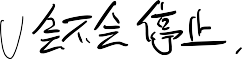 U会不会停止.